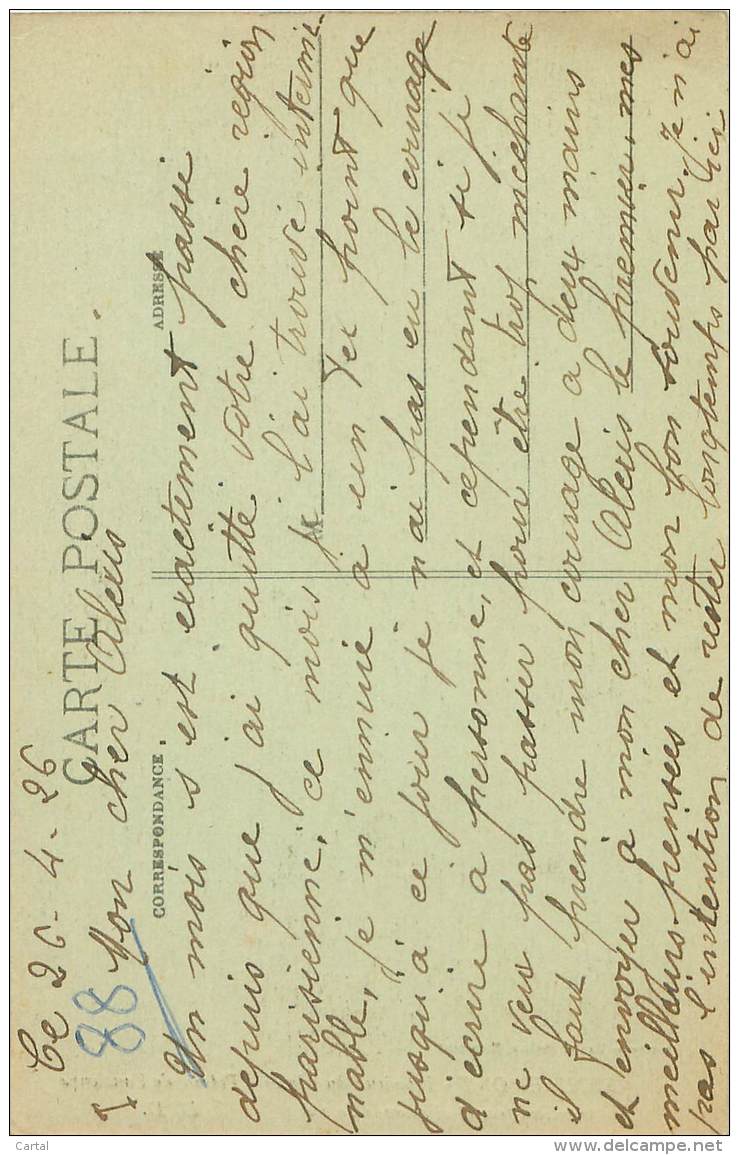 Ce 26-4-26
CARTE POSTALE.
88 Mon cher Alexis
CORRESPONDANCE. ADRESSE
Un mois s'est exactement passé
depuis que j'ai quitté votre chère région
parisienne, ce mois je l'ai trouvé intermi-
nable, je m'ennuie à un tel point que
jusqu'à ce jour je n'ai pas eu le courage
d'ecrire à personne, et cependant si je
ne veux pas passer pour être trop méchante
il faut prendre mon courage a deux mains
et envoyer a mon cher Alexis le premier, mes
meilleurs pensées et mon bon souvenir. Je n'ai
pas l'intention de rester longtemps par ici
Cartal
www.delcampe.net